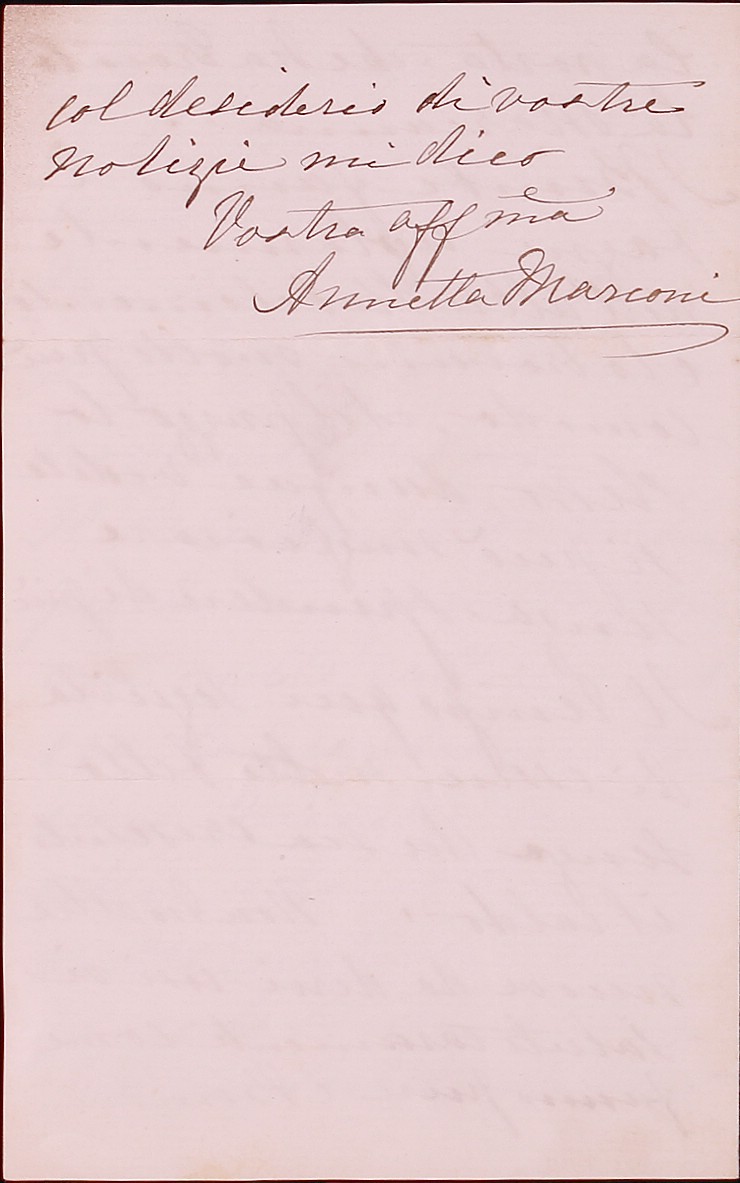 col desiderio di vostre
notizie mi dico
Vostra affma
Annetta Marconi